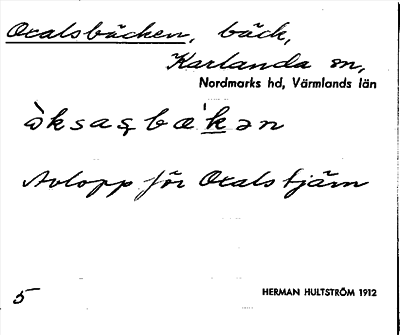 Oxalsbäcken, bäck,
Karlanda sn,
Nordmarks hd, Värmlands län
Avlopp för Oxalstjärn
5
HERMAN HULTSTRÖM 1912